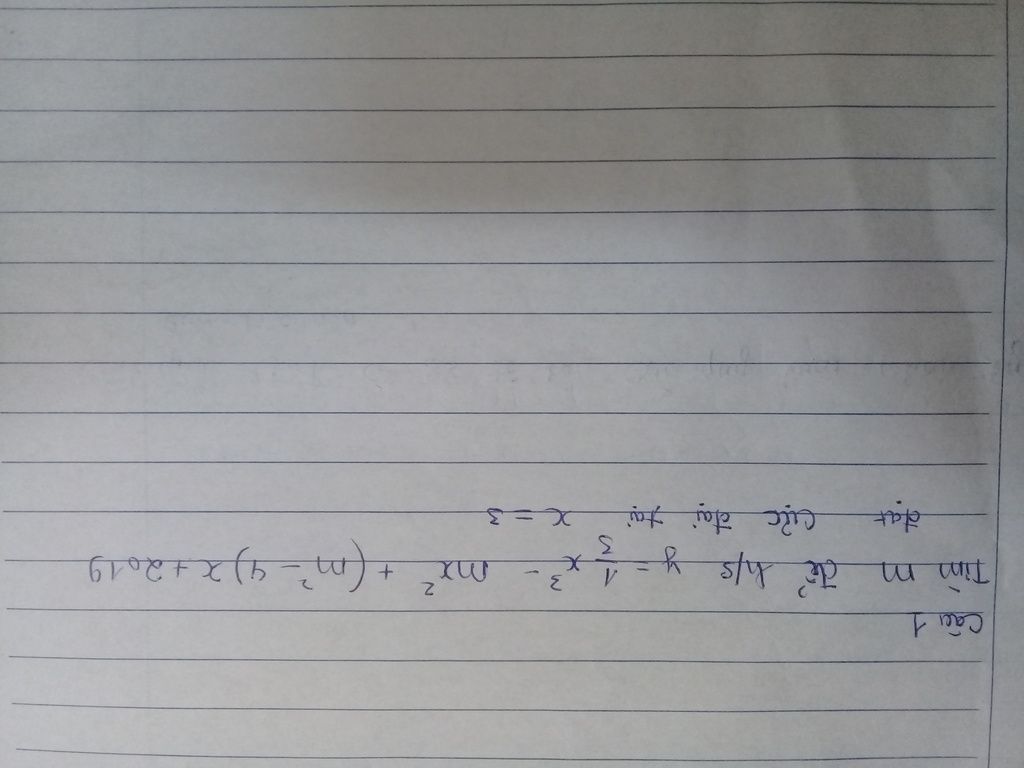 Câu 1
Tìm m để h/s y = 1/3 x³ - mx² + (m² - 4)x + 2019
đạt cực đại tại x = 3